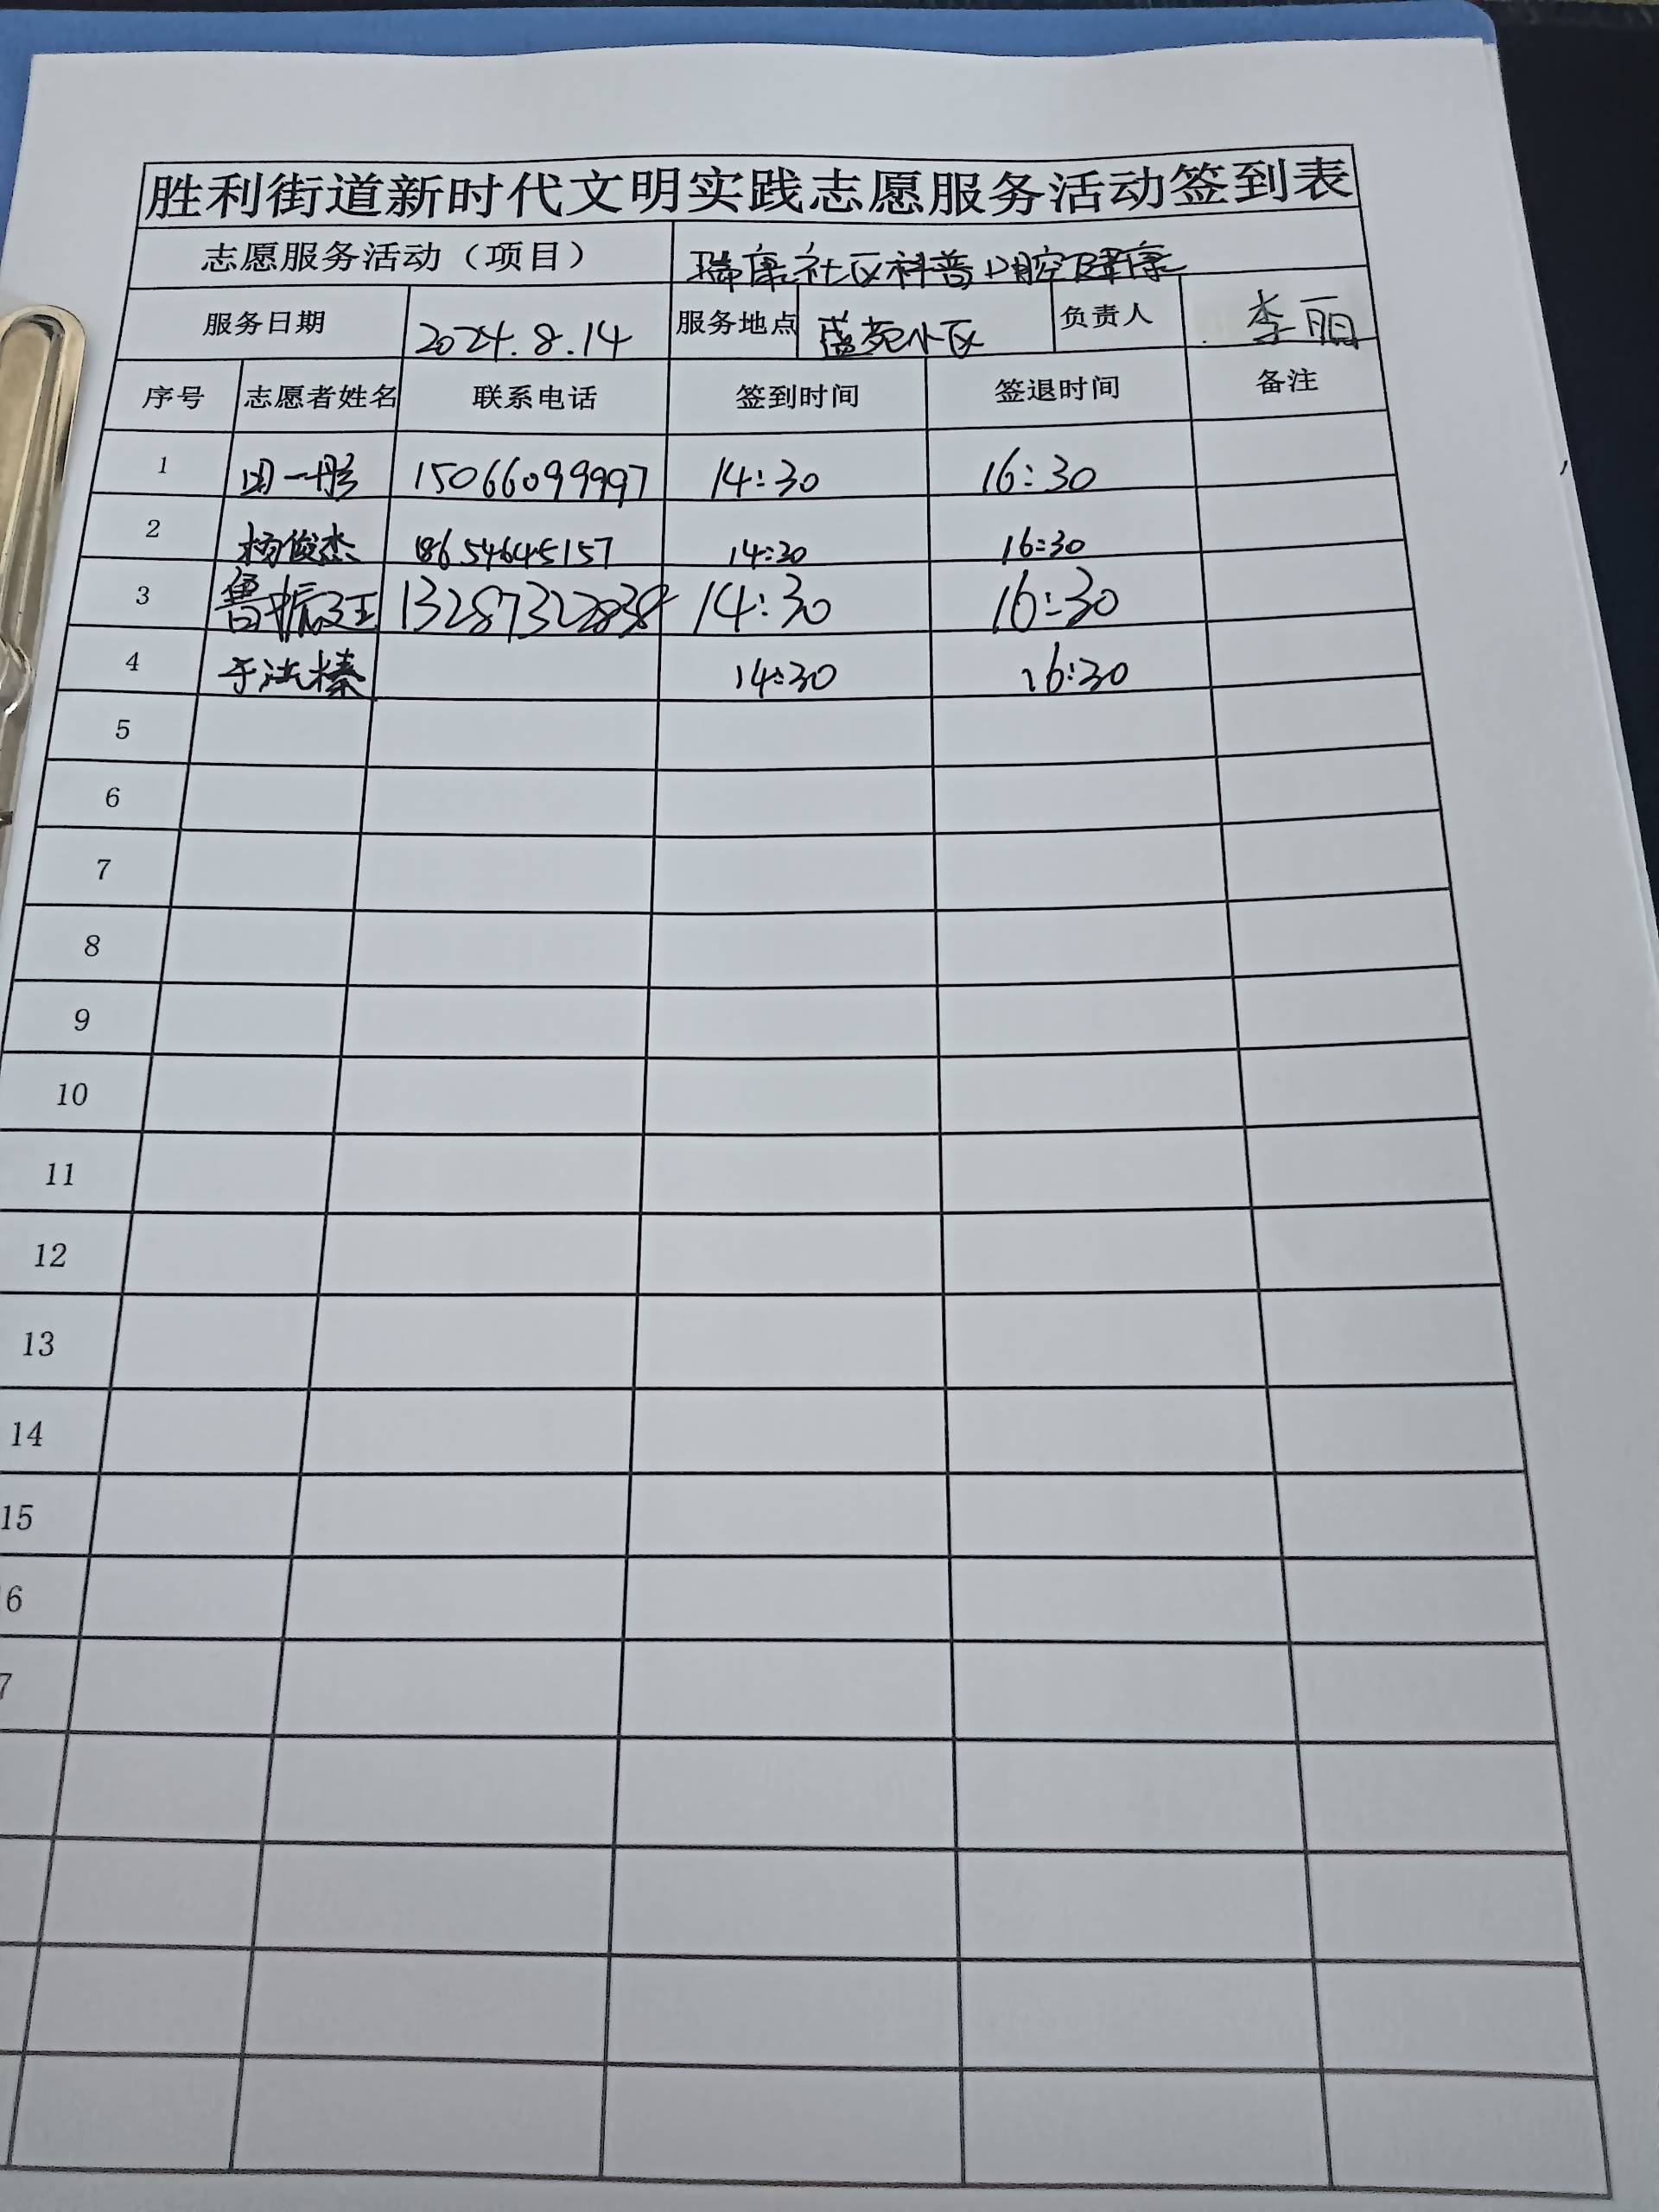 胜利街道新时代文明实践志愿服务活动签到表
志愿服务活动（项目） 瑞康社区科普口腔健康
服务日期 2024.8.14 服务地点 盛苑小区 负责人 李丽
序号 志愿者姓名 联系电话 签到时间 签退时间 备注
1 一彤 15066099997 14:30 16:30
2 杨俊杰 18654645157 14:30 16:30
3 鲁振 14:30 16:30
4 于 榛 14:30 16:30
5
6
7
8
9
10
11
12
13
14
15
6
7